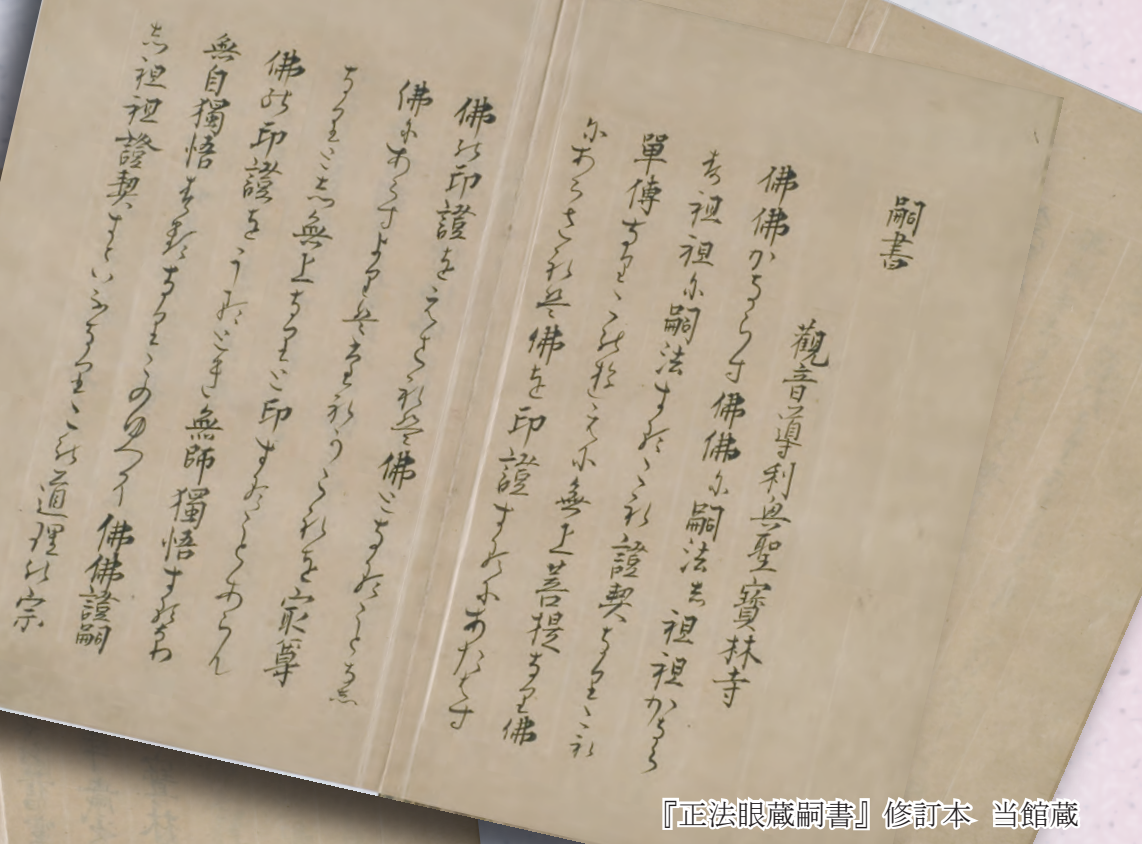 嗣書
觀音導利興聖寶林寺
佛佛かならす佛佛に嗣法し祖祖かなら
す祖祖に嗣法するこれ證契なりこれ
單傳なりこのゆえに無上菩提なり佛
にあらされは佛を印證するにあたはす
佛の印證をえされは佛となることなし
佛にあらすよりはたれかこれを最尊
なりとし無上なりと印することあらん
佛の印證をうるとき無師獨悟するなり
無自獨悟するなりこのゆへに佛佛證嗣
し祖祖證契すといふなりこの道理の宗
『正法眼蔵嗣書』修訂本 当館蔵